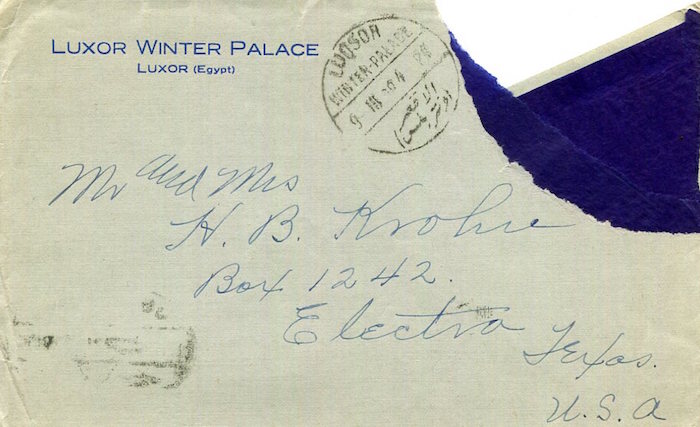 LUXOR WINTER PALACE
LUXOR (Egypt)
LOUQSOR
WINTER-PALACE
الاقصر
Mr and Mrs
H. B. Krohn
Box 1242.
Electra
Texas.
U.S.A